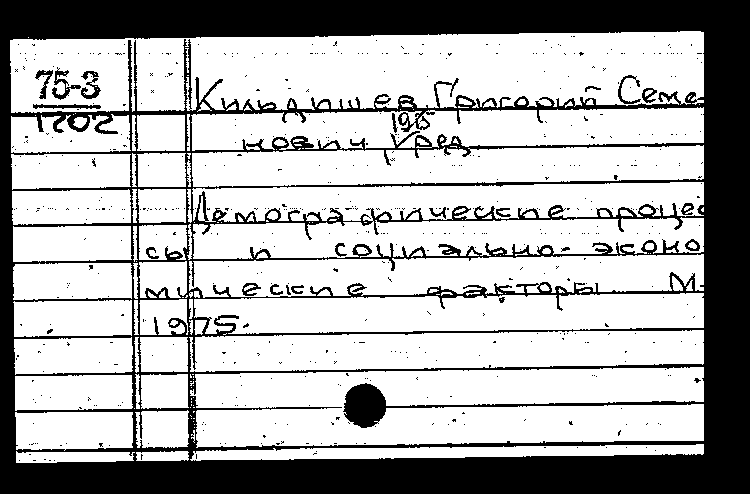 75-3
1202
Кильдишев, Григорий Семе-
1915
нович, ред.
Демографические процес
сы и социально-эконо
мические факторы. М-
1975.